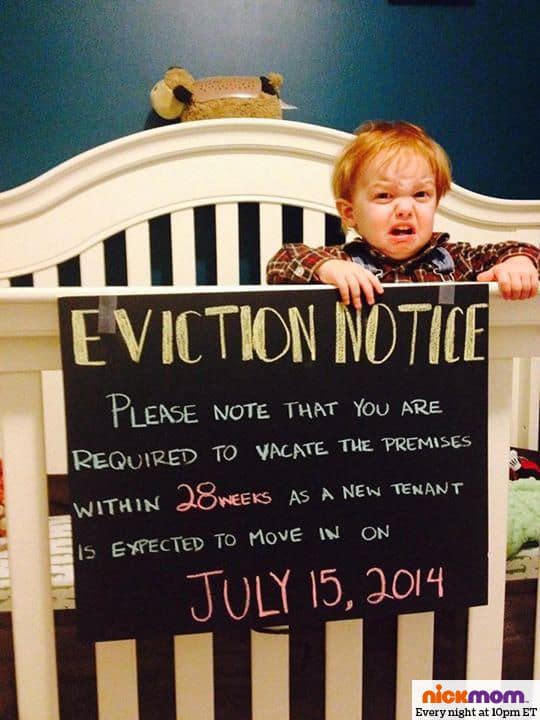 EVICTION NOTICE
PLEASE NOTE THAT YOU ARE
REQUIRED TO VACATE THE PREMISES
WITHIN 28 WEEKS AS A NEW TENANT
IS EXPECTED TO MOVE IN ON
JULY 15, 2014
nickmom
Every night at 10pm ET